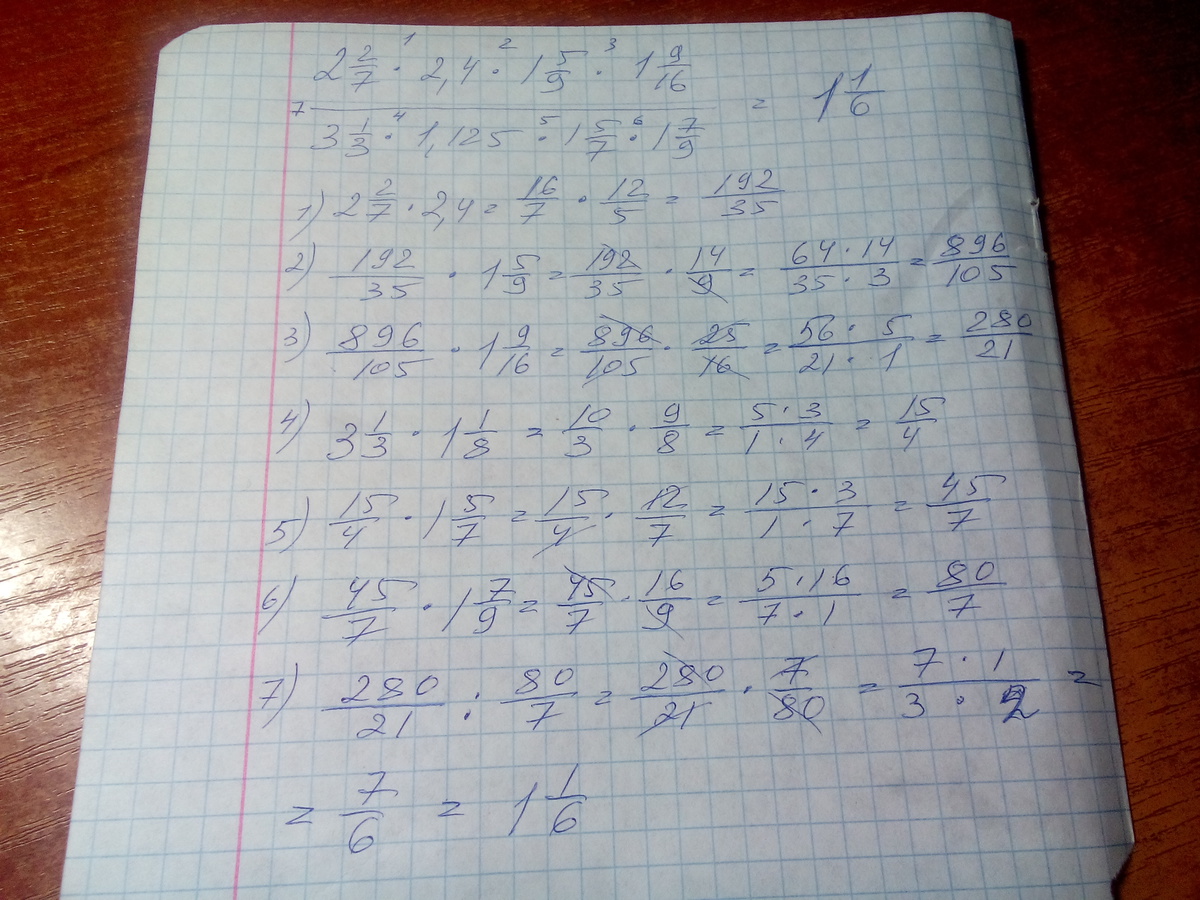 7 (2 2/7 ·¹ 2,4 ·² 1 5/9 ·³ 1 9/16) / (3 1/3 ·⁴ 1,125 ·⁵ 1 5/7 ·⁶ 1 7/9) = 1 1/6
1) 2 2/7 · 2,4 = 16/7 · 12/5 = 192/35
2) 192/35 · 1 5/9 = 192/35 · 14/9 = (64 · 14)/(35 · 3) = 896/105
3) 896/105 · 1 9/16 = 896/105 · 25/16 = (56 · 5)/(21 · 1) = 280/21
4) 3 1/3 · 1 1/8 = 10/3 · 9/8 = (5 · 3)/(1 · 4) = 15/4
5) 15/4 · 1 5/7 = 15/4 · 12/7 = (15 · 3)/(1 · 7) = 45/7
6) 45/7 · 1 7/9 = 45/7 · 16/9 = (5 · 16)/(7 · 1) = 80/7
7) 280/21 : 80/7 = 280/21 · 7/80 = (7 · 1)/(3 · 2) =
= 7/6 = 1 1/6